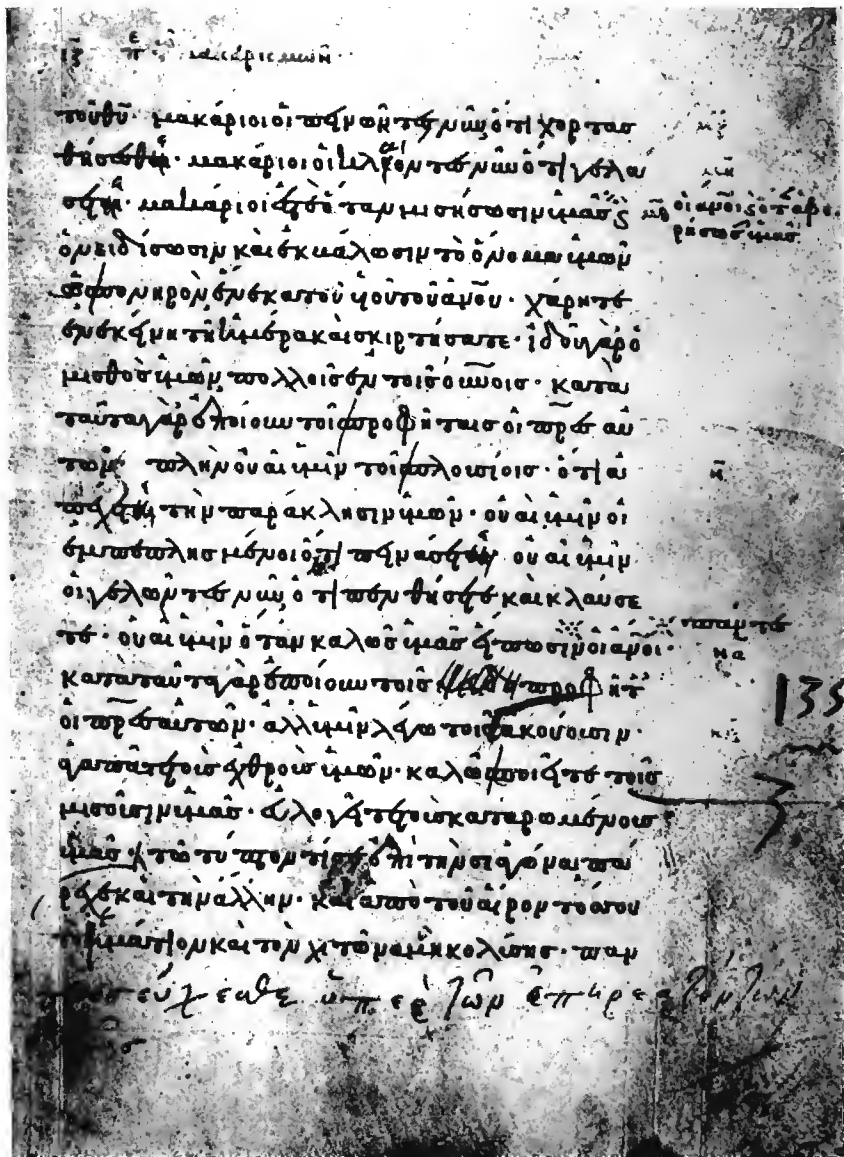 ιζ πε τῶν μακαρισμῶν
τοῦ θῦ· μακάριοι οἱ πεινῶντες νῦν ὅτι χορτασ
θήσεσθε· μακάριοι οἱ κλαίοντες νῦν ὅτι γελά
σετε· μακάριοι ἐστὲ ὅταν μισήσωσιν ὑμᾶς ϛ οἱ ἄνοι ϛ ὅτ ἀφο
ρήσωσ ὑμᾶς
ὀνειδίσωσιν καὶ ἐκβάλωσιν τὸ ὄνομα ὑμῶν
ὡς πονηρὸν ἕνεκα τοῦ υἱοῦ τοῦ ἀνου· χάρητε
ἐν ἐκείνη τῆ ἡμέρα καὶ σκιρτήσατε· ἰδοὺ γὰρ ὁ
μισθὸς ὑμῶν πολλοὶς ἐν τοῖς οὐνοις· κατὰ
ταῦτα γὰρ ἐποίουν τοῖς προφήταις οἱ πρες αὐ
τῶν· πλὴν οὐαὶ ὑμῖν τοῖς πλουσίοις· ὅτι ἀ
πέχετε τὴν παράκλησιν ὑμῶν· οὐαὶ ὑμῖν οἱ
ἐμπεπλησμένοι ὅτι πεινάσετε· οὐαὶ ὑμῖν
οἱ γελῶντες νῦν ὅτι πενθήσετε καὶ κλαύσε
τε· οὐαὶ ὑμῖν ὅταν καλῶς ὑμᾶς εἴπωσιν οἱ ἄνοι· πάντες
κατὰ ταῦτα γὰρ ἐποίουν τοῖς προφήτ
οἱ πρες αὐτῶν· ἀλλ' ὑμῖν λέγω τοῖς ἀκούουσιν· 135
ἀγαπᾶτε τοὺς ἐχθροὺς ὑμῶν· καλῶς ποιεῖτε τοῖς
μισοῦσιν ὑμᾶς· εὐλογεῖτε τοὺς καταρωμένους
ὑμᾶς· τῶ τύπτοντί σε ἐπὶ τὴν σιαγόνα πά
ρεχε καὶ τὴν ἄλλην· καὶ ἀπὸ τοῦ αἴροντός σου
τὸ ἱμάτιον καὶ τὸν χιτῶνα μὴ κολύσης· παν
εύχεσθε ὑπερ τῶν ἐπηρεαζόντων